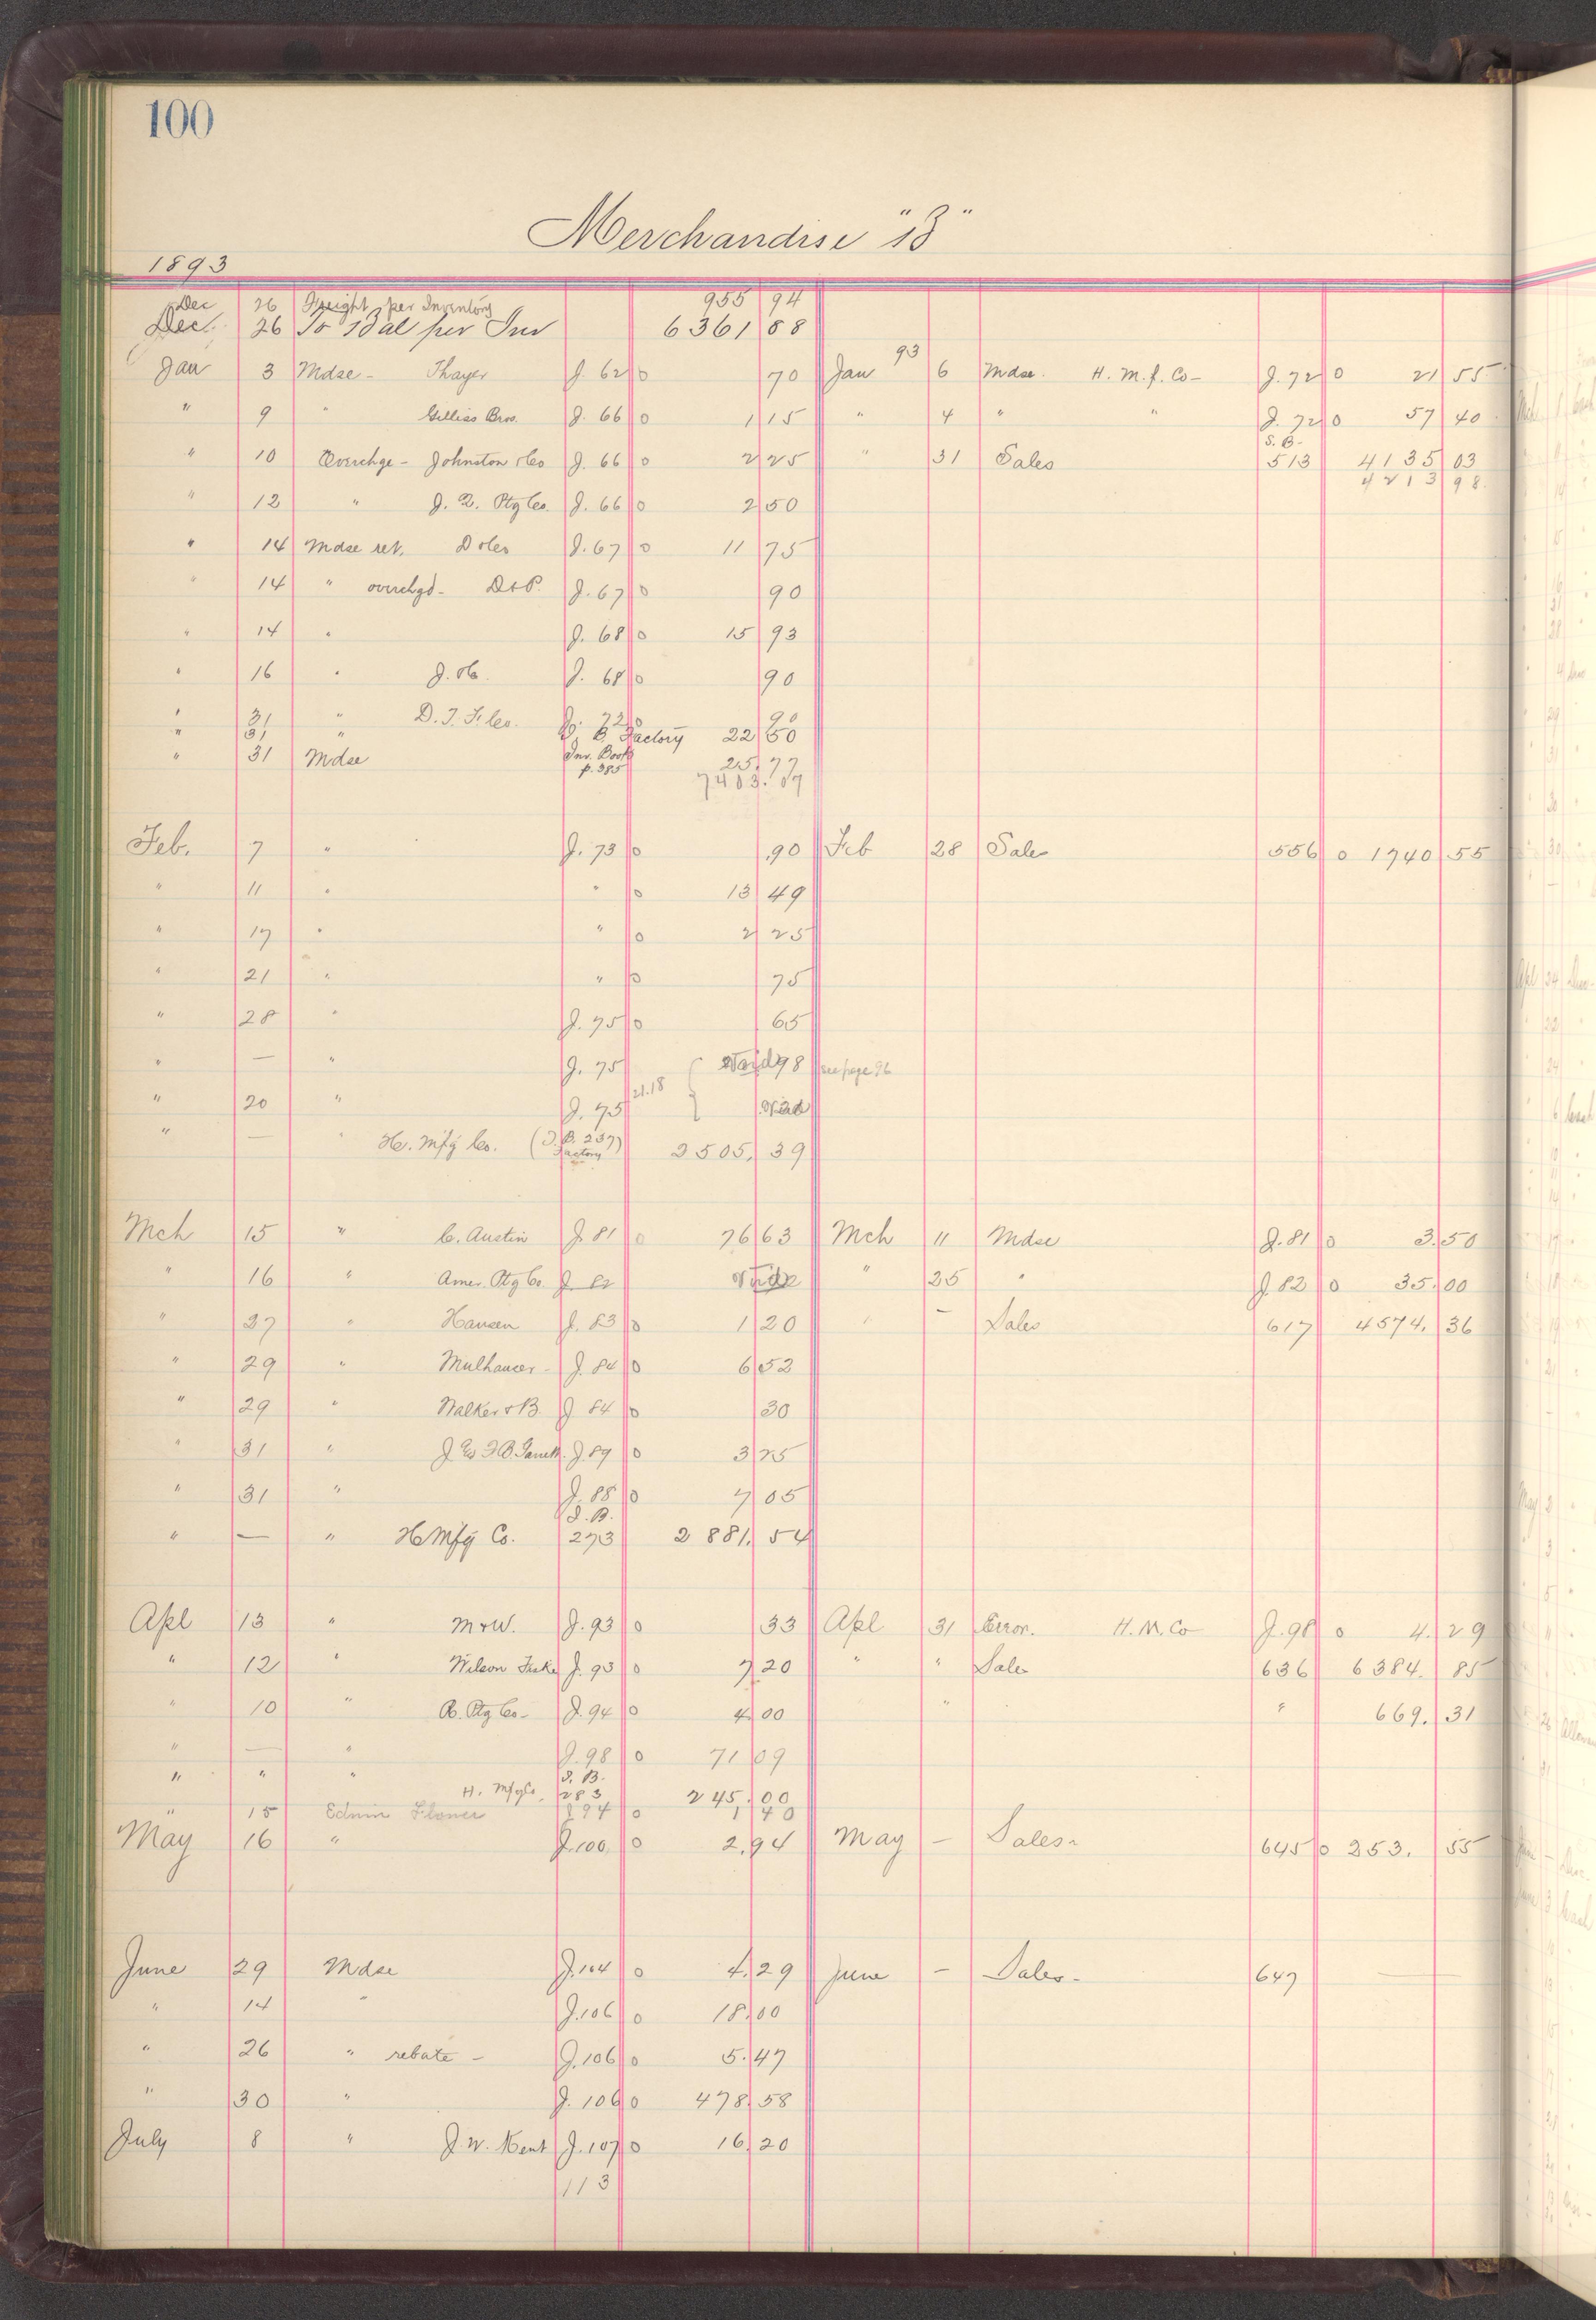 100
Merchandise "B"
1893
Dec 26 Freight per Inventory 955 94
Dec. 26 To Bal per Inv 6361 88
Jan 3 Mdse - Thayer J. 62 0 70 Jan 93 6 Mdse. H. M. f. Co - J. 72 0 21 55
" 9 " Gilliss Bros. J. 66 0 1 15 " 4 " " J. 72 0 57 40
" 10 Overchge - Johnston & Co J. 66 0 2 25 " 31 Sales S. B. 513 4135 03
4213 98
" 12 " J. Q. Ptg Co. J. 66 0 2 50
" 14 Mdse ret. D & Co J. 67 0 11 75
" 14 " overchgd - D & P. J. 67 0 90
" 14 " J. 68 0 15 93
" 16 " J. 68 0 90
" 31 " D. T. S. Co. J. 72 0 90
" 31 B Factory 22 50
" 31 Mdse Inv. Book p. 385 25 77
7403.07
Feb. 7 " J. 73 0 .90 Feb 28 Sales 556 0 1740 55
" 11 " " 0 13 49
" 17 " " 0 2 25
" 21 " " 0 75
" 28 " J. 75 0 65
" — " J. 75 98 see page 96
" 20 " J. 75 21.18
" — " H. Mfg Co. (I. B. 237) Factory 2505. 39
Mch 15 " C. Austin J. 81 0 76 63 Mch 11 Mdse J. 81 0 3. 50
" 16 " Amer. Ptg Co. J 82 " 25 " J. 82 0 35. 00
" 27 " Hansen J. 83 0 1 20 " — Sales 617 4574. 36
" 29 " Mulhauser - J. 84 0 6 52
" 29 " Walker & B. J 84 0 30
" 31 " J. 89 0 3 25
" 31 " J. 85 0 7 05
" — " H Mfg Co. I. B. 273 2881. 54
Apl 13 " M & W. J. 93 0 33 Apl 31 Error. H. M. Co J. 98 0 4. 29
" 12 " Wilson J. 93 0 7 20 " " Sales 636 6384. 85
" 10 " Ptg Co - J. 94 0 4 00 " " 669. 31
" — " J. 98 0 71 09
" " " H. Mfg Co. I. B. 283 245. 00
" 15 Edwin 0 1 40
May 16 " J. 100. 0 2. 94 May — Sales - 645 0 253. 55
June 29 Mdse J. 104 0 4. 29 June — Sales - 647 —
" 14 " J. 106 0 18. 00
" 26 " rebate - J. 106 0 5. 47
" 30 " J. 106 0 478 58
July 8 " J. W. Kent J. 107 0 16 20
113